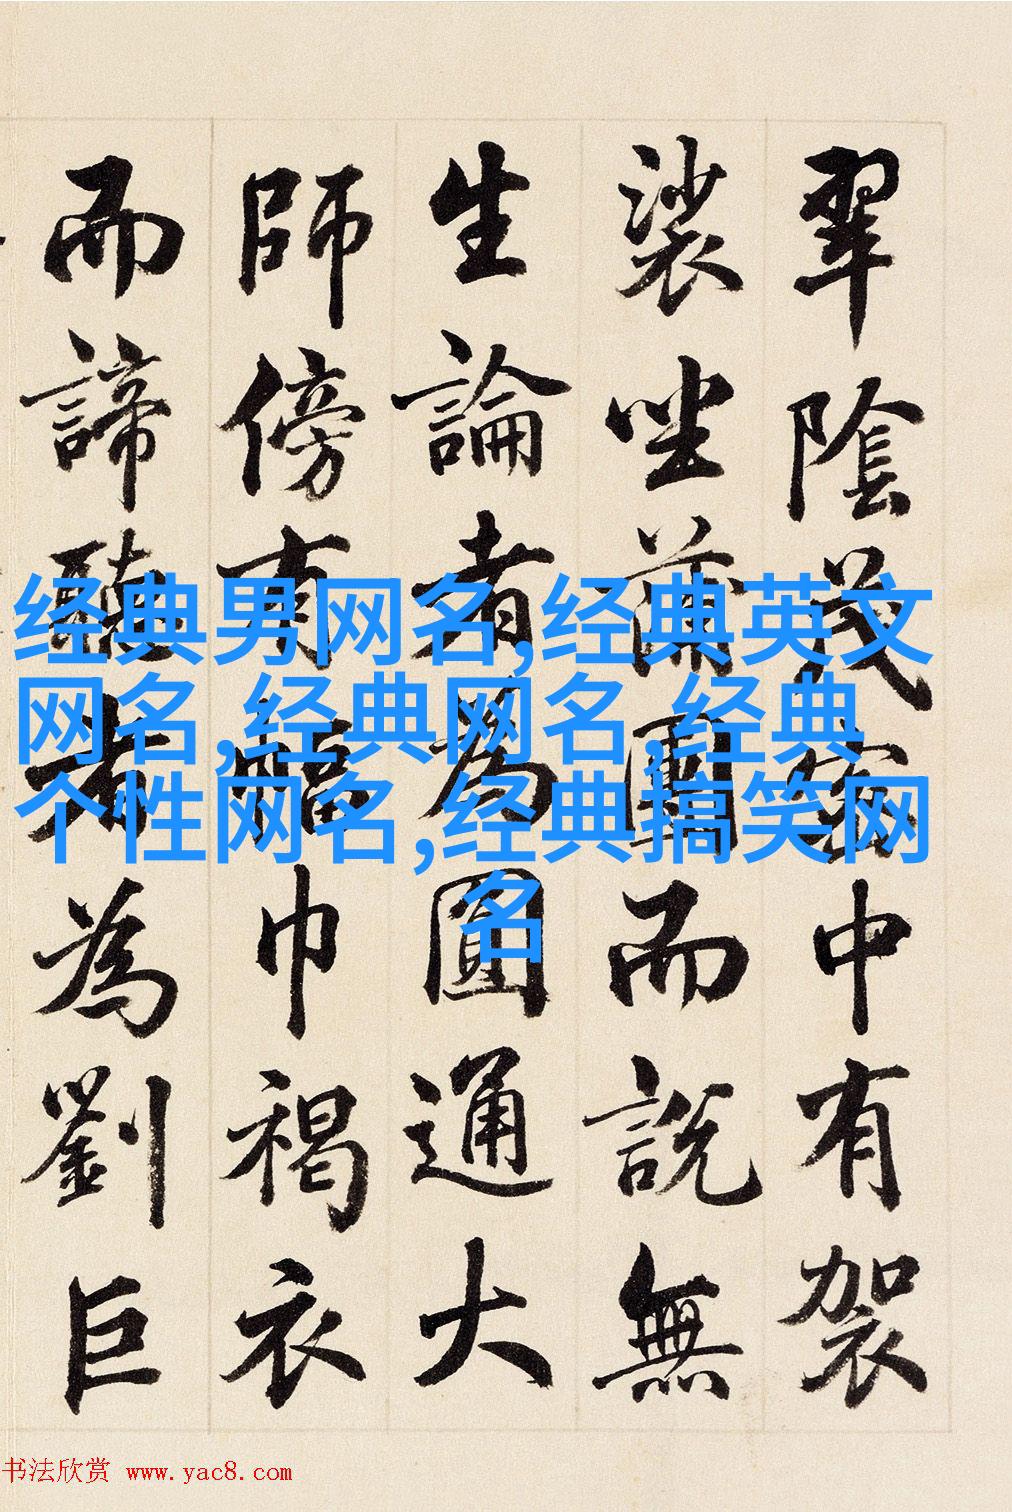 翠陰茂密中有袈
裟坐蒲團而說無
生論者為圓通大
師傍有幅巾褐衣
而諦聽者為劉巨
经典男网名,经典英文
网名,经典网名,经典
个性网名,经典搞笑网
名
书法欣赏 www.yac8.com